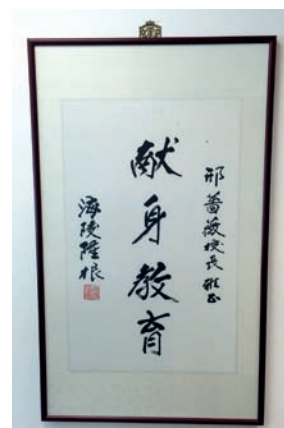 邢蔷薇校长雅正
献身教育
海陵陆根